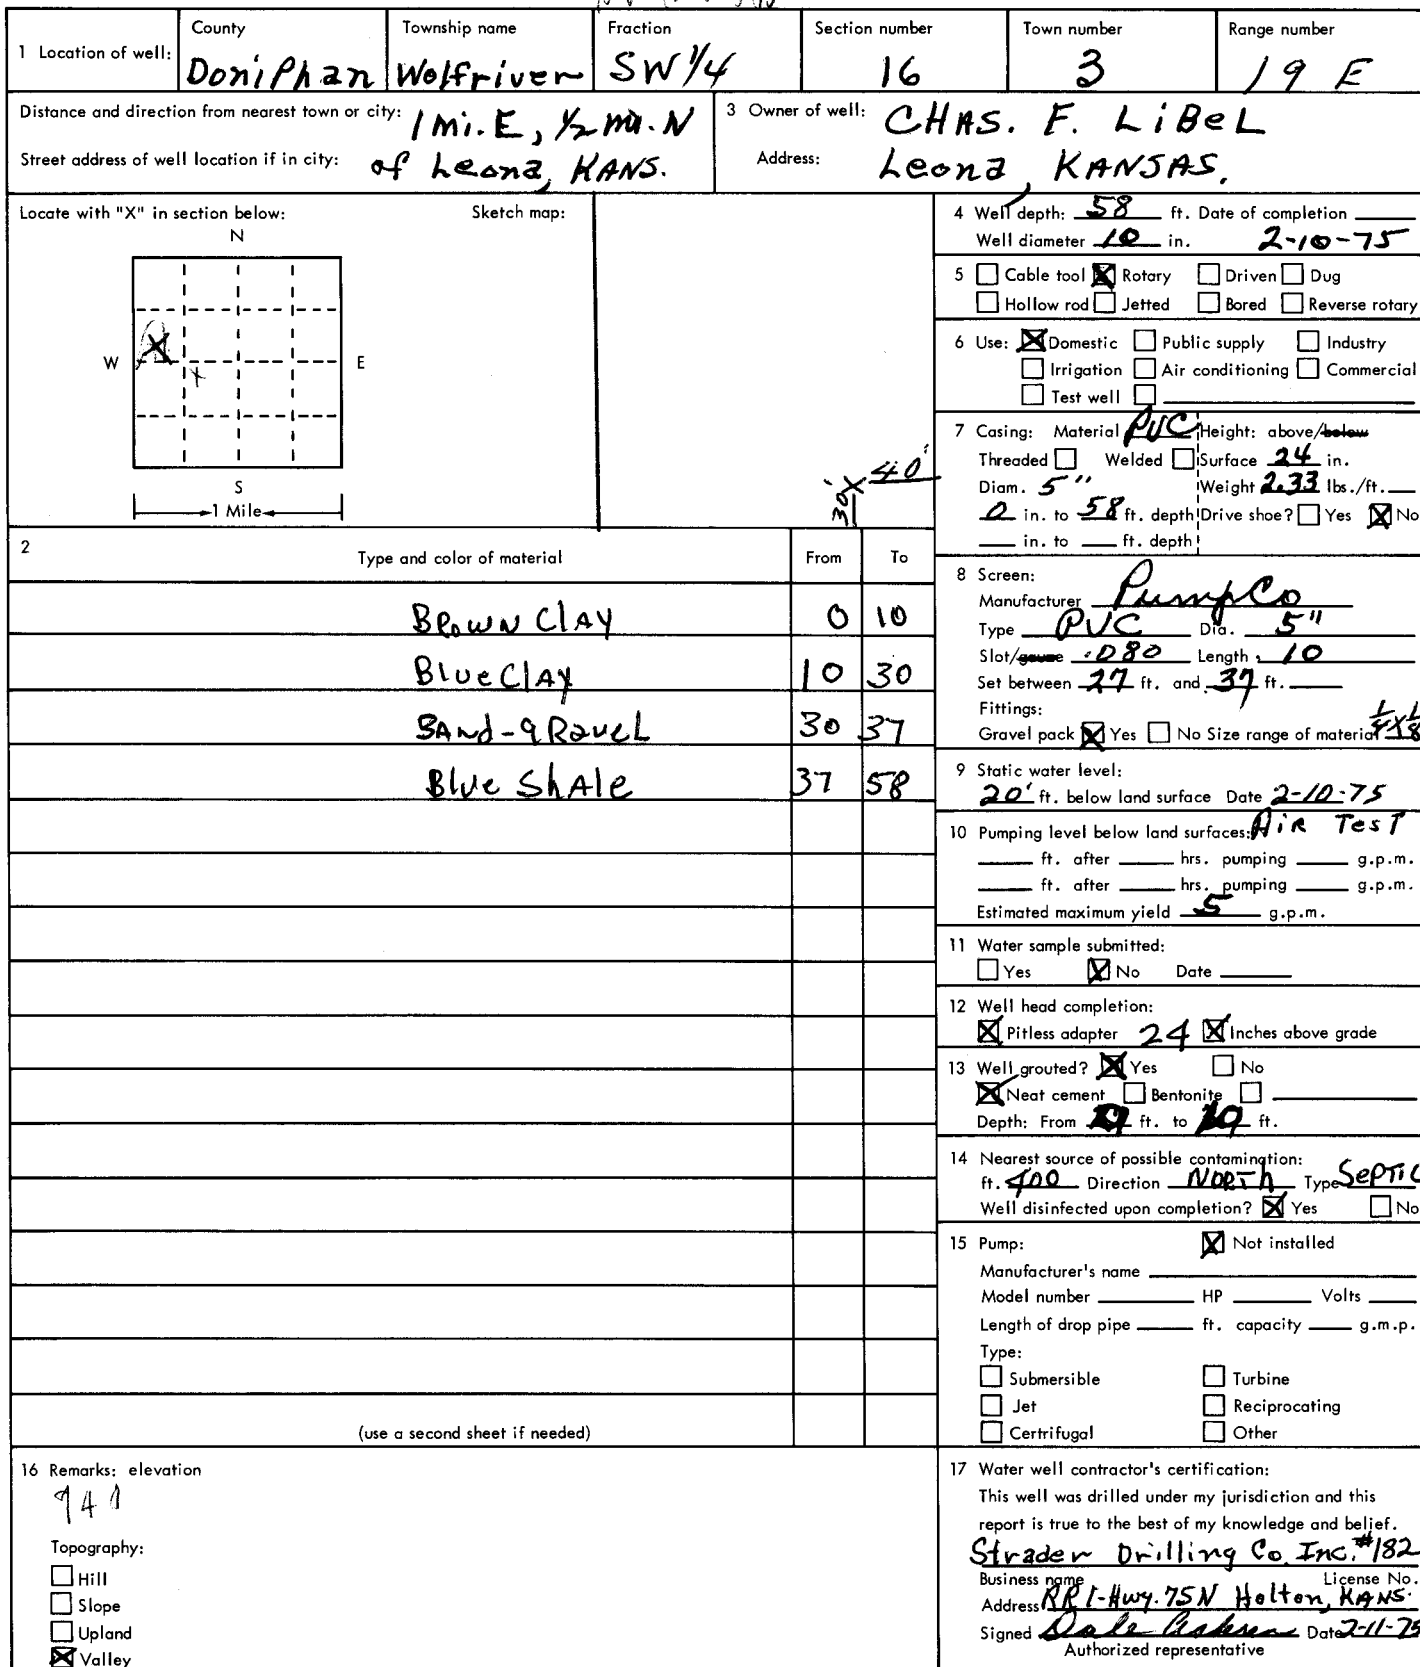 1 Location of well:
County Township name Fraction Section number Town number Range number
DoniPhan Wolfriver SW 1/4 16 3 19 E
Distance and direction from nearest town or city: 1 mi. E, 1/2 mi. N
Street address of well location if in city: of Leona, KANS.
3 Owner of well: CHAS. F. LiBeL
Address: Leona, KANSAS.
Locate with "X" in section below: Sketch map:
N
W E
X
S
1 Mile
30' X 40'
2 Type and color of material From To
BROWN ClAY 0 10
BlueClAY 10 30
SANd-gRaveL 30 37
Blue ShAle 37 58
(use a second sheet if needed)
4 Well depth: 58 ft. Date of completion
Well diameter 10 in. 2-10-75
5 Cable tool X Rotary Driven Dug
Hollow rod Jetted Bored Reverse rotary
6 Use: X Domestic Public supply Industry
Irrigation Air conditioning Commercial
Test well
7 Casing: Material PVC Height: above/below
Threaded Welded Surface 24 in.
Diam. 5" Weight 2.33 lbs./ft.
0 in. to 58 ft. depth Drive shoe? Yes X No
in. to ft. depth
8 Screen:
Manufacturer PumpCo
Type PVC Dia. 5"
Slot/gauze .080 Length 10
Set between 27 ft. and 37 ft.
Fittings:
Gravel pack X Yes No Size range of material 1/4 X 1/8
9 Static water level:
20' ft. below land surface Date 2-10-75
10 Pumping level below land surfaces: AiR TesT
ft. after hrs. pumping g.p.m.
ft. after hrs. pumping g.p.m.
Estimated maximum yield 5 g.p.m.
11 Water sample submitted:
Yes X No Date
12 Well head completion:
X Pitless adapter 24 X Inches above grade
13 Well grouted? X Yes No
X Neat cement Bentonite
Depth: From ft. to ft.
14 Nearest source of possible contamination:
ft. 400 Direction NORTh Type SePTIC
Well disinfected upon completion? X Yes No
15 Pump: X Not installed
Manufacturer's name
Model number HP Volts
Length of drop pipe ft. capacity g.m.p.
Type:
Submersible Turbine
Jet Reciprocating
Certrifugal Other
16 Remarks: elevation
Topography:
Hill
Slope
Upland
X Valley
17 Water well contractor's certification:
This well was drilled under my jurisdiction and this
report is true to the best of my knowledge and belief.
Strader Drilling Co. Inc. #182
Business name License No.
Address RR1-Hwy. 75N Holton, KANS.
Signed Dale Date 2-11-75
Authorized representative